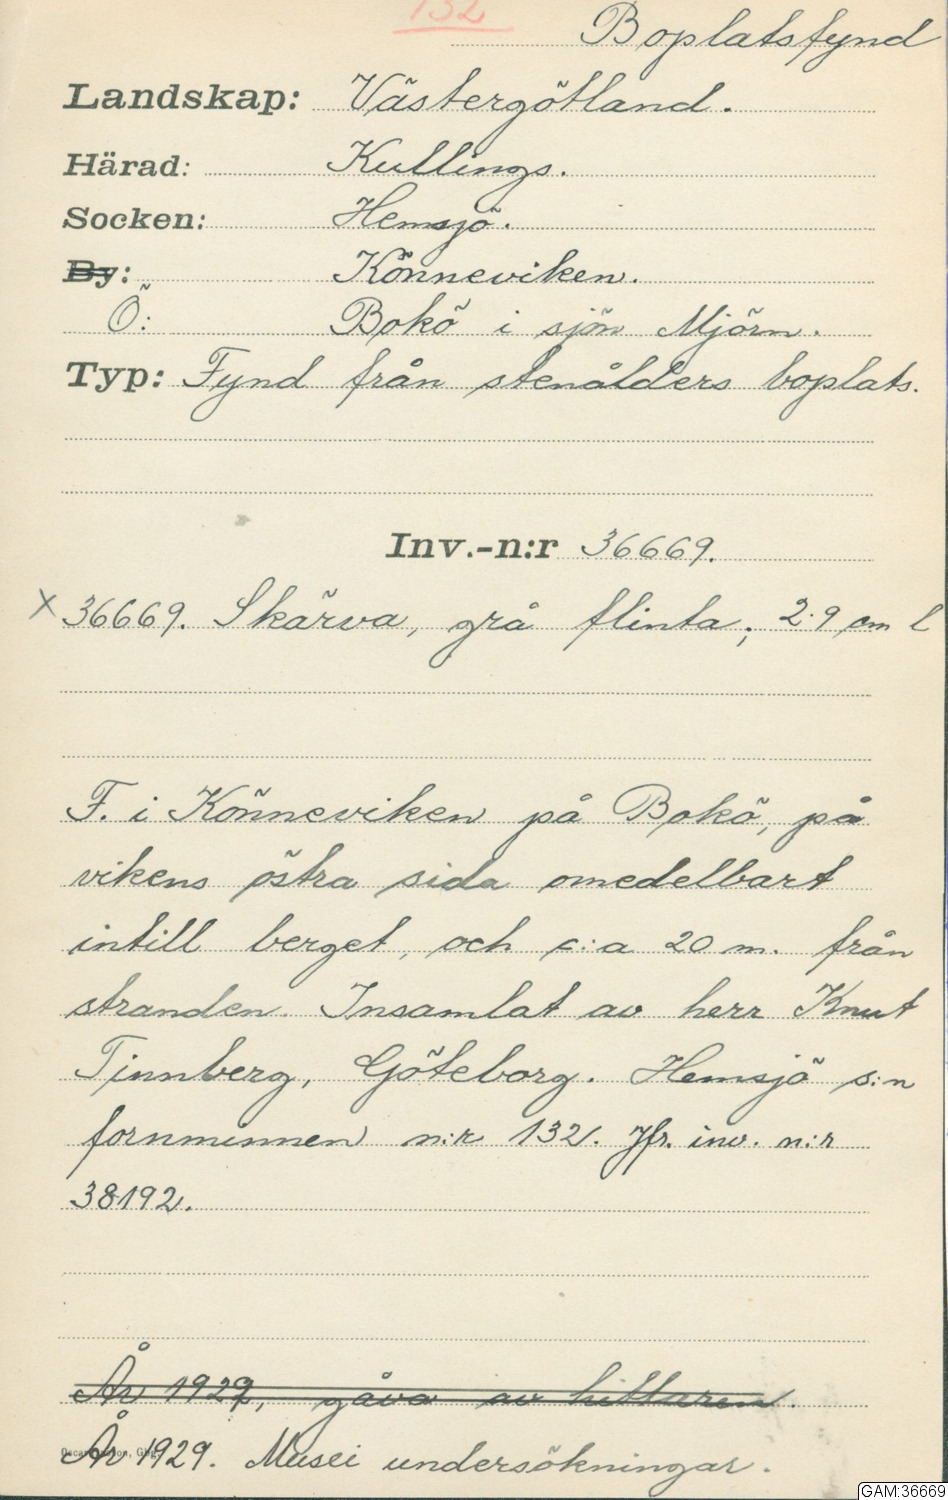 132
Boplatsfynd
Landskap: Västergötland.
Härad: Kullings.
Socken: Hemsjö.
By: Könneviken.
Ö: Bokö i sjön Mjörn.
Typ: Fynd från stenålders boplats.
Inv.-n:r 36669.
x 36669. Skärva, grå flinta; 2.9 cm l
F. i Könneviken på Bokö, på
vikens östra sida omedelbart
intill berget, och c:a 20 m. från
stranden. Insamlat av herr Knut
Tinnberg, Göteborg. Hemsjö s:n
fornminnen n:r 132. Jfr. inv. n:r
38192.
År 1929, gåva av hittaren.
År 1929. Musei undersökningar.
GAM:36669